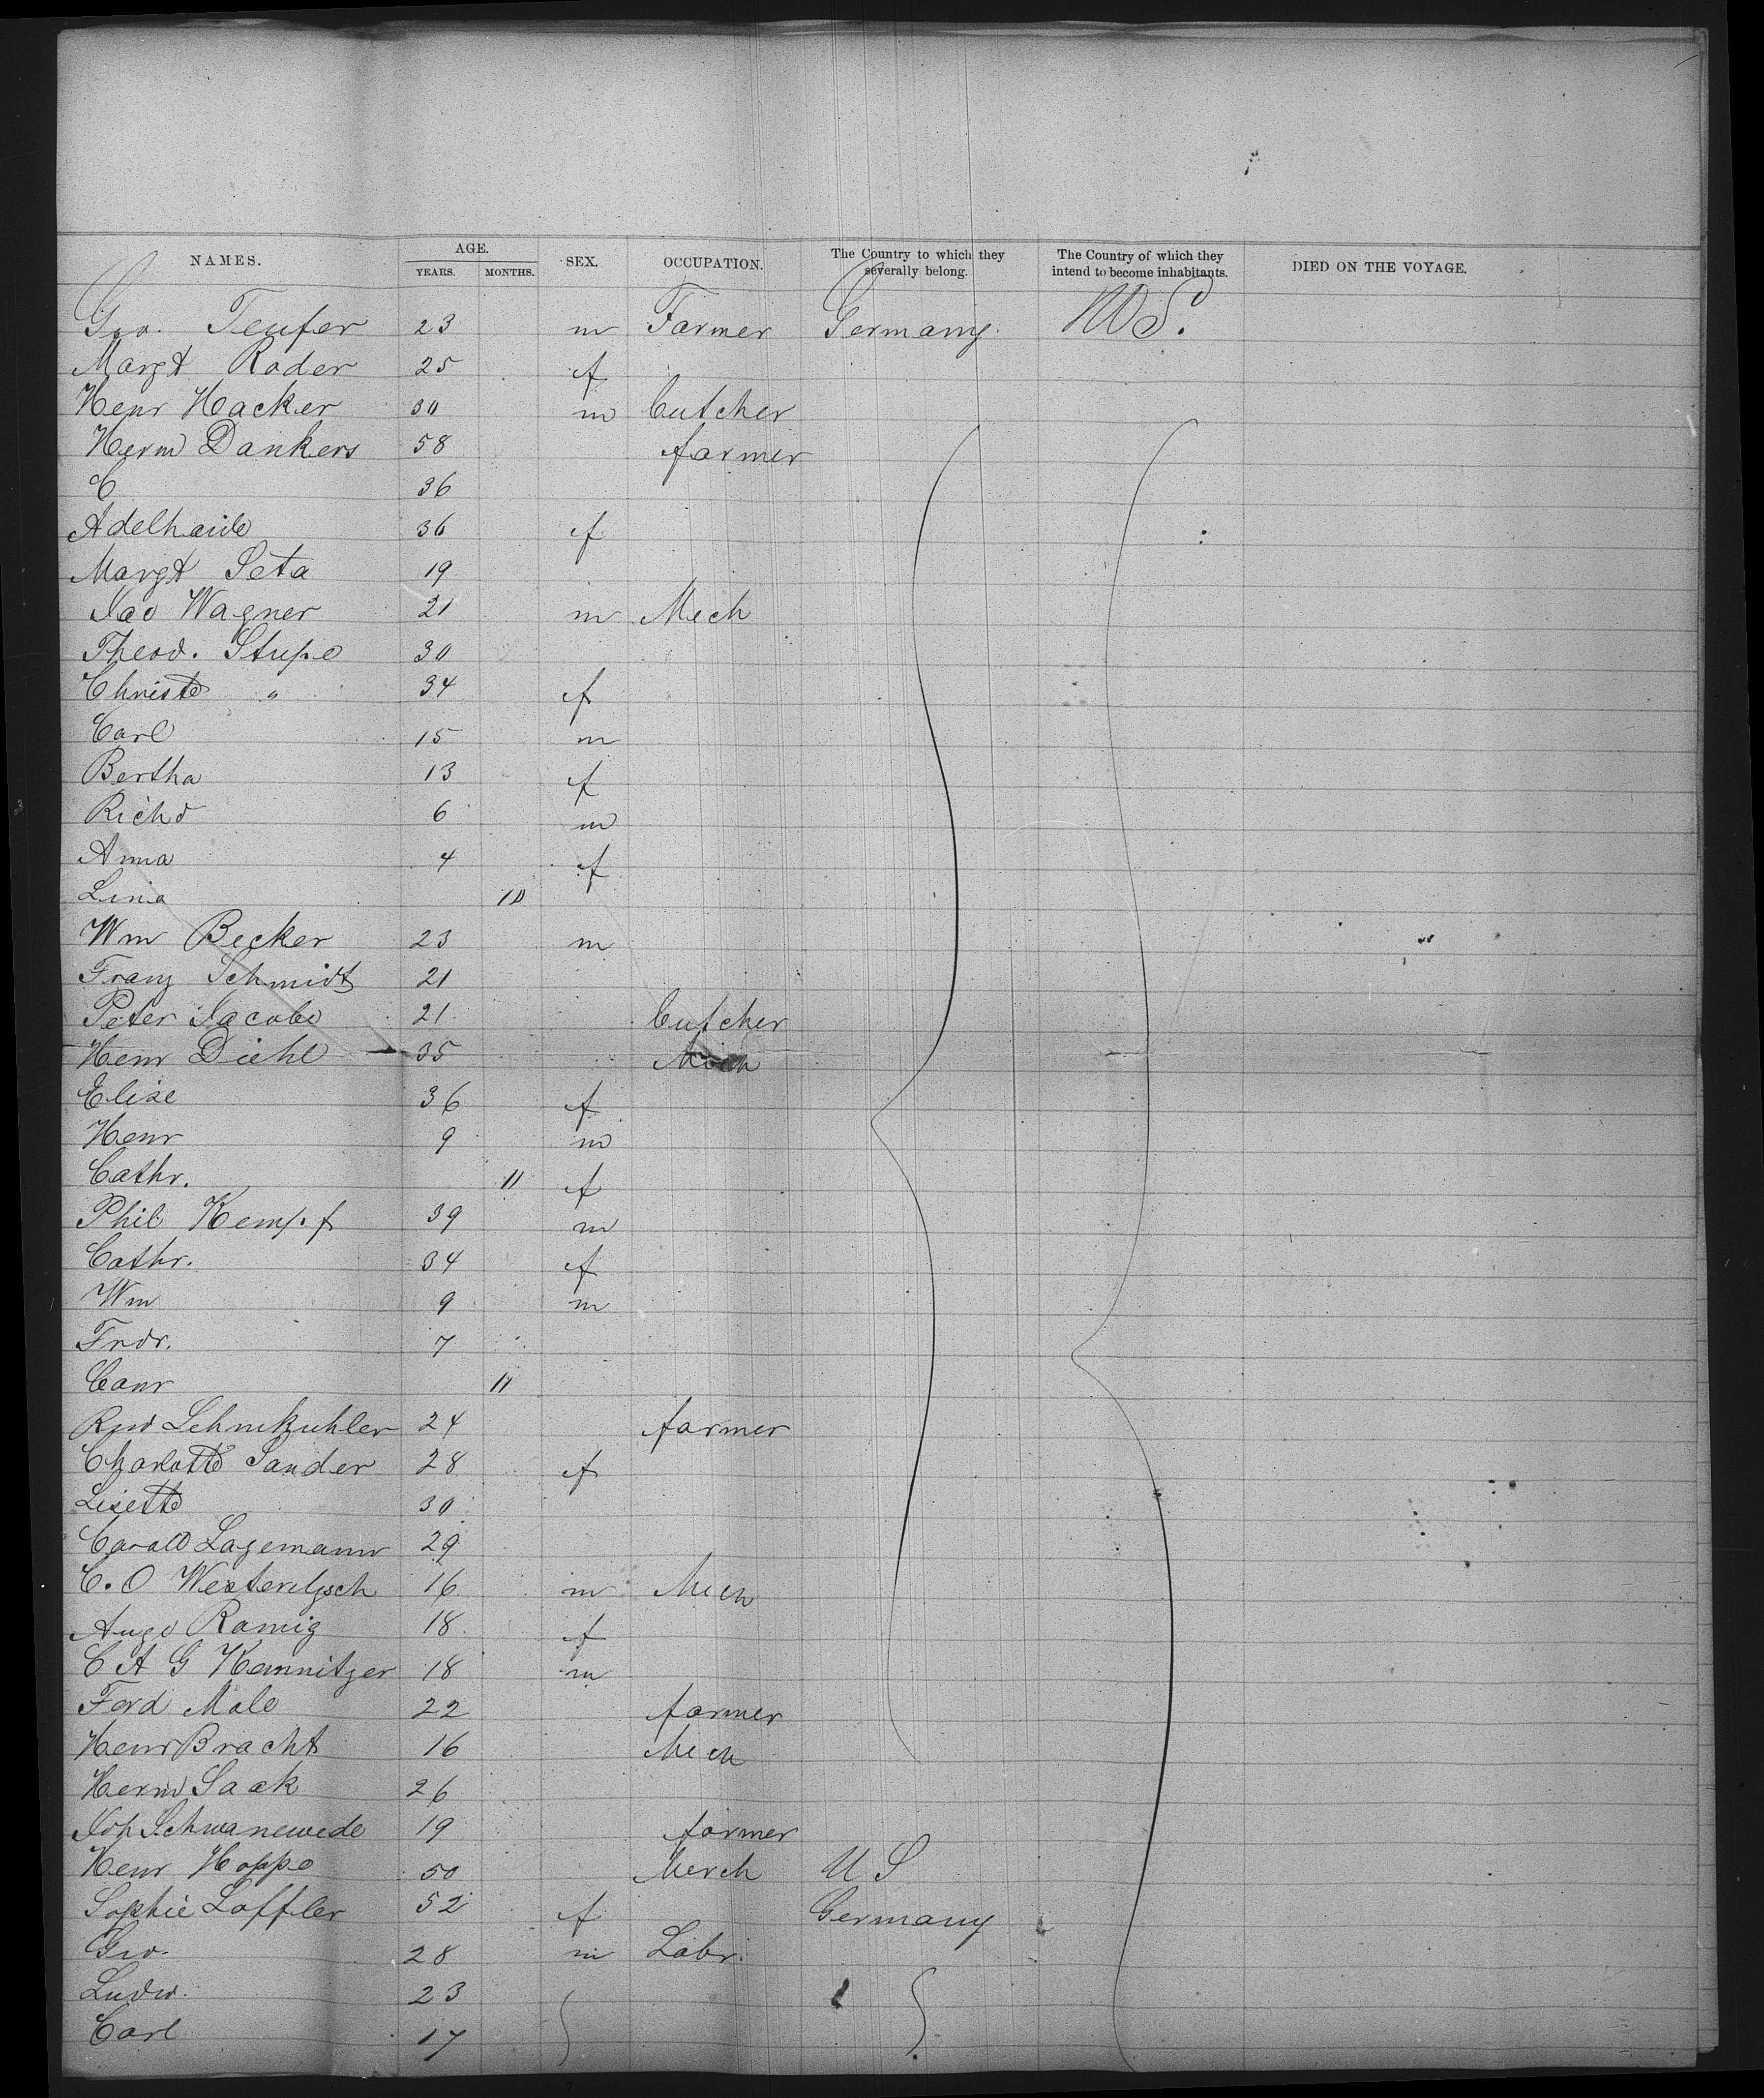 NAMES. AGE. YEARS. MONTHS. SEX. OCCUPATION. The Country to which they severally belong. The Country of which they intend to become inhabitants. DIED ON THE VOYAGE.
Geo. Teufer 23 m Farmer Germany. U S.
Margt Rader 25 f
Henr Hacker 30 m butcher
Herm Dankers 58 farmer
C 36
Adelhaide 36 f
Margt Seta 19
Jac Wagner 21 m Mech
Theod. Stupe 30
Christe " 34 f
Carl 15 m
Bertha 13 f
Richd 6 m
Anna 4 f
Lina 10
Wm Becker 23 m
Franz Schmidt 21
Peter Jacobe 21 butcher
Henr Diehl 35 Mech
Elise 36 f
Henr 9 m
Cathr. 11 f
Phil Kempf 39 m
Cathr. 34 f
Wm 9 m
Frdr. 7
Conr 11
Rud Lehmkuhler 24 farmer
Charlotte Sander 28 f
Lisette 30
Lagemann 29
C. O 16 m Mech
Auge Ramig 18 f
C A G Kemnitzer 18 m
Ferd Male 22 farmer
Henr Bracht 16 Mech
Herm Saak 26
Joh Schwanewede 19 farmer
Henr Hoppe 50 Merch U S
Sophie Loffler 52 f Germany
Geo. 28 m Labr.
Ludw. 23
Carl 17